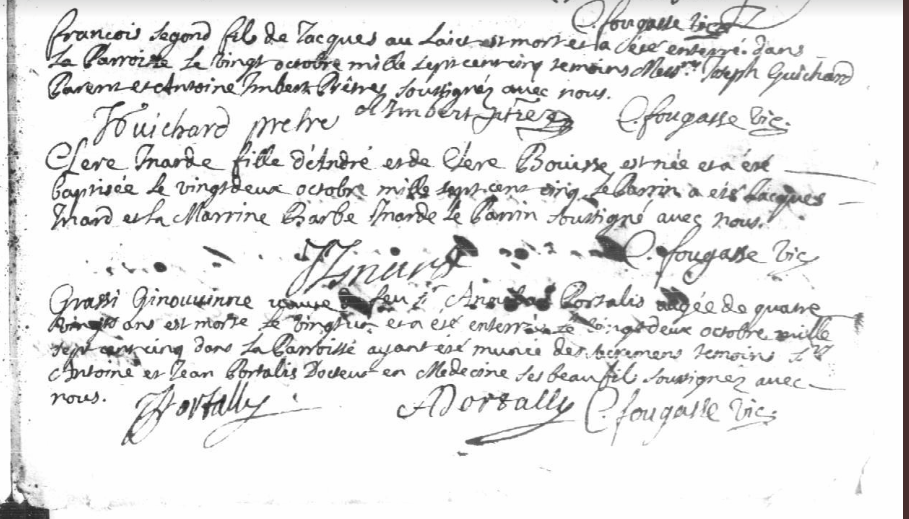 C. fougasse vic.
francois segond fils de Jacques au Laict est mort et a été enterré dans
la Parroisse le vingt octobre mille sept cent cinq temoins Mess.rs Joseph Guichard
Parent et Antoine Imbert Prêtres soussignéz avec nous.
Guichard pretre A Imbert ptre C. fougasse vic.
Clere Inarde fille d'André et de Clere Bouisse est née et a été
baptisée le vingt deux octobre mille sept cent cinq Le Parrin a eté Jacques
Inard et la Marrine Barbe Inarde le Parrin soussigné avec nous.
J Inard C. fougasse vic.
Grassi Ginouvinne veuve de feu Sr Portalis aagée de quatre
vingts ans est morte le vingt un et a été enterrée le vingt deux octobre mille
sept cent cinq dans la Parroisse ayant eté munie des sacremens temoins Srs
Antoine et Jean Portalis Docteur en Medecine ses beau fils soussignez avec
nous. Portally A Portally C. fougasse vic.